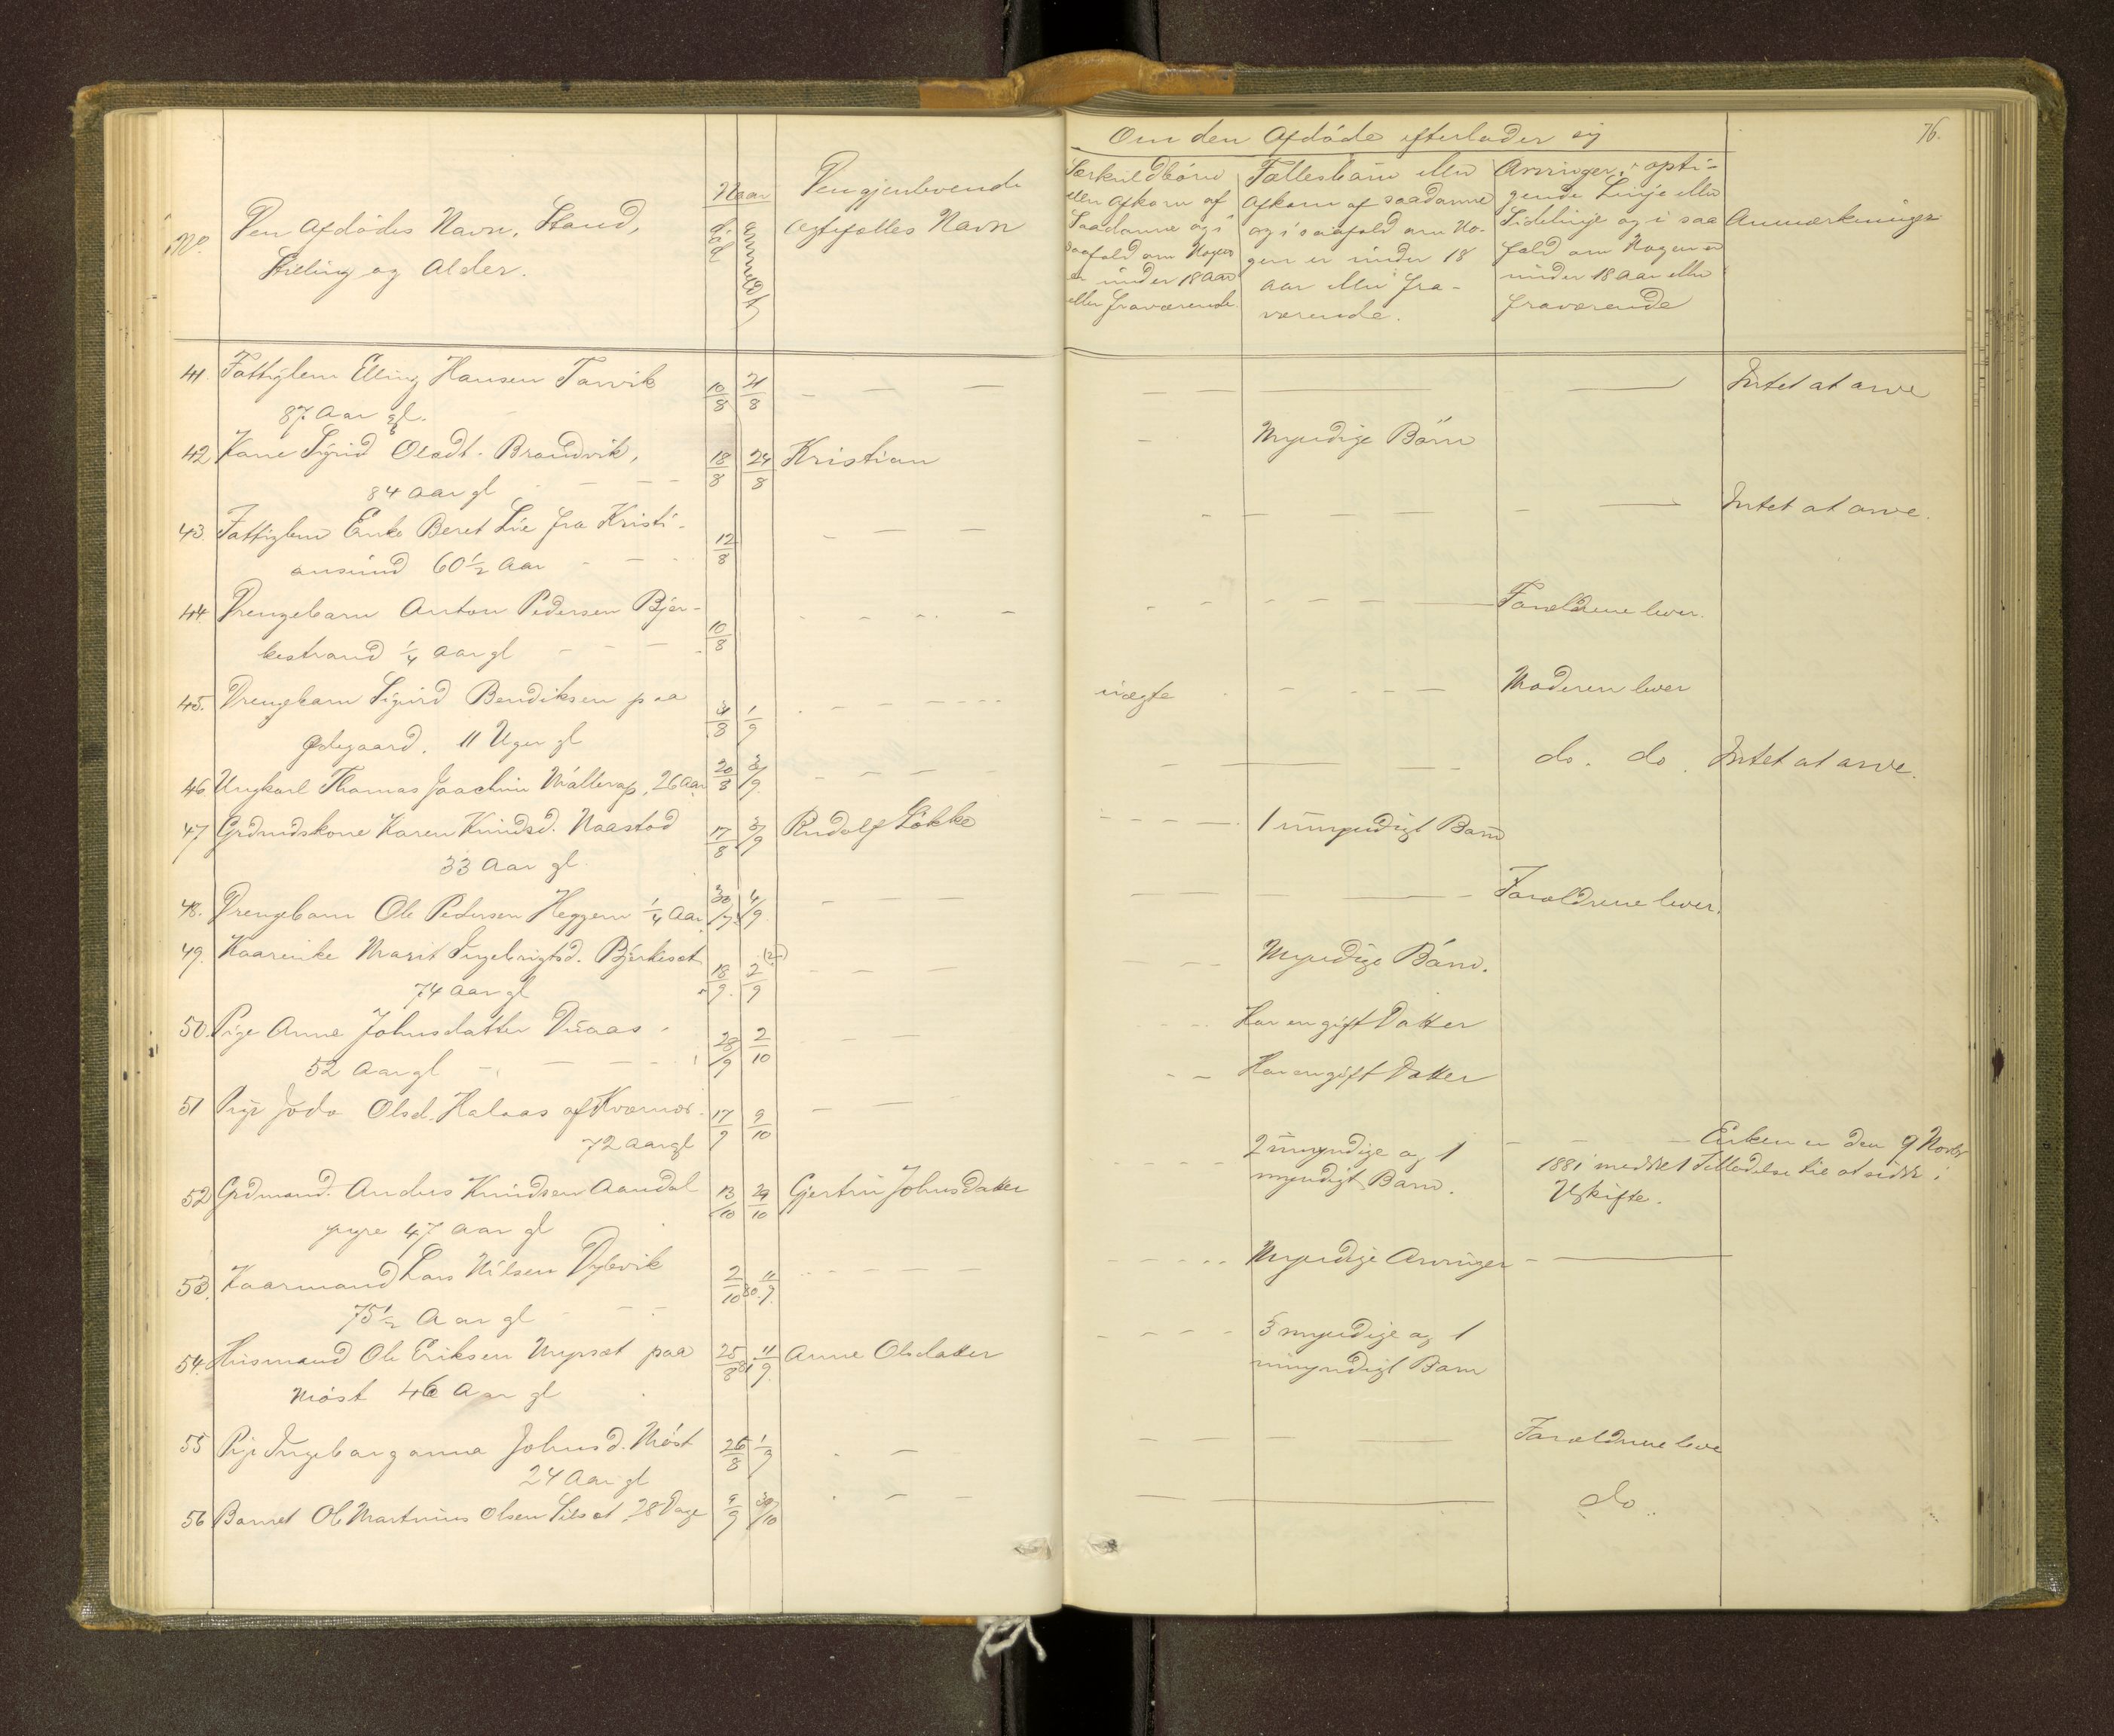 76.
Om den Afdöde efterlader sig
No.
Den Afdödes Navn, Stand,
Stilling og Alder.
Naar
död
anmeldt
Den gjenlevende
Ægtefælles Navn
Særkuldbörn
eller Afkom af
Saadanne og i
saafald om Nogen
er under 18 Aar
eller fraværende.
Fællesbörn eller
Afkom af saadanne
og i saafald om No-
gen er under 18
Aar eller fra-
værende.
Arvinger i opsti-
gende Linje eller
Sidelinje og i saa
fald om Nogen er
under 18 Aar eller
fraværende
Anmærkninger
41. Fattiglem Elling Hansen Tarvik 10/8 21/8 — — — Intet at arve
87 Aar gl.
42 Kone Sigrid Olsdt. Brandvik, 18/8 24/8 Kristian - Myndige Börn
84 Aar gl
43. Fattiglem Enke Beret Lie fra Kristi- 12/8 Intet at arve.
ansund 60 1/2 Aar
44. Drengebarn Anton Pedersen Bjer- 10/8 Forældrene lever.
kestrand 1/4 Aar gl
45. Drengebarn Sigurd Bendiksen paa 31/8 1/9 uægte Moderen lever
Ødegaard. 11 Uger gl
46. Ungkarl Thomas Joachim 26 Aar 20/8 3/9 do. do. Intet at arve.
47 Grdmdskone Karen Knudsd. Naastad 17/8 3/9 Rudolf Lökke 1 umyndigt Barn
33 Aar gl.
48. Drengebarn Ole Pedersen Heggem 1/4 Aar 30/7 4/9 Forældrene lever.
49. Kaarenke Marit Ingebrigtsd. Bjerkesæt 18/9 2/9 Myndige Börn.
74 Aar gl
50. Pige Anne Johnsdatter Duaas 28/9 2/10 Har en gift Datter
52 Aar gl
51 Pige Olsd. Halaas af 17/9 9/10 Har en gift Datter
72 Aar gl
52 Grdmand. Anders Knudsen Aandal 13/10 29/10 Gjertru Johnsdatter 2 umyndige og 1 Enken er den 9 Novbr
yngre 47 Aar gl myndigt Barn. 1881 meddelt Tilladelse til at sidde i
Uskifte.
53. Kaarmand Lars Nilsen Dybvik 2/10 80. 11/9 Myndige Arvinger
75 1/2 Aar gl
54. Husmand Ole Eriksen paa 25/8 81 11/9 Anne Olsdatter 5 myndige og 1
Möst 46 Aar gl umyndigt Barn
55 Pige Ingeborganna Johnsd. Möst 26/8 1/9 Forældrene leve
24 Aar gl
56 Barnet Ole Martinus Olsen 28 Dage 9/9 30/10 do.